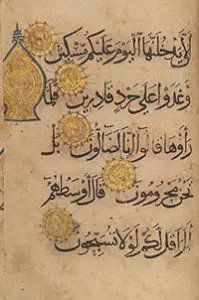 لا يدخلنها اليوم عليكم مسكين
وغدوا على حرد قادرين فلما
رأوها قالوا إنا لضالون بل
نحن محرومون قال أوسطهم
ألم أقل لكم لولا تسبحون